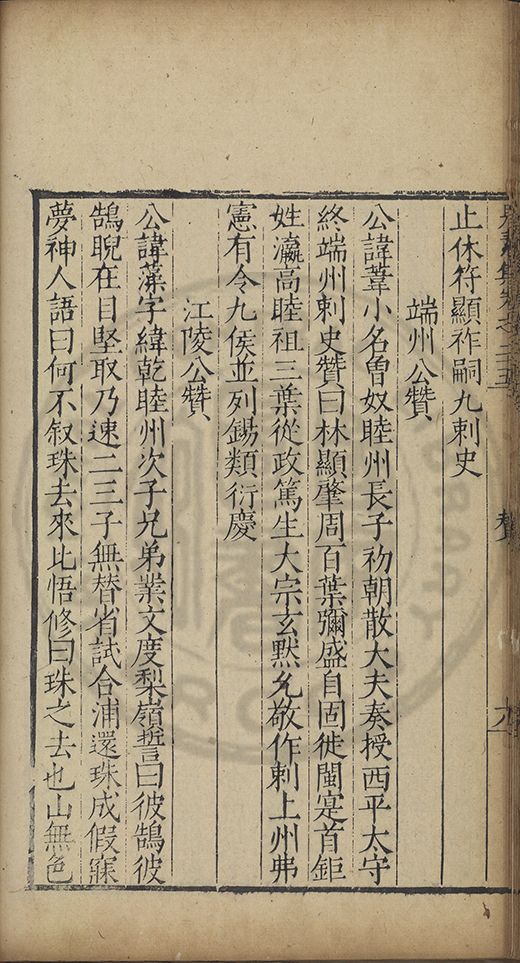 止休符顯祚嗣九刺史
端州公贊
公諱葦小名曾奴睦州長子初朝散大夫奏授西平太守
終端州刺史贊曰林顯肇周百葉彌盛自固徙閩寔首鉅
姓瀛高睦祖三葉從政篤生大宗玄默允敬作刺上州弗
憲有令九侯並列錫類衍慶
江陵公贊
公諱藻字緯乾睦州次子兄弟業文度梨嶺誓曰彼鵠彼
鵠睨在目堅取乃速二三子無替省試合浦還珠成假寐
夢神人語曰何不叙珠去來比悟修曰珠之去也山無色